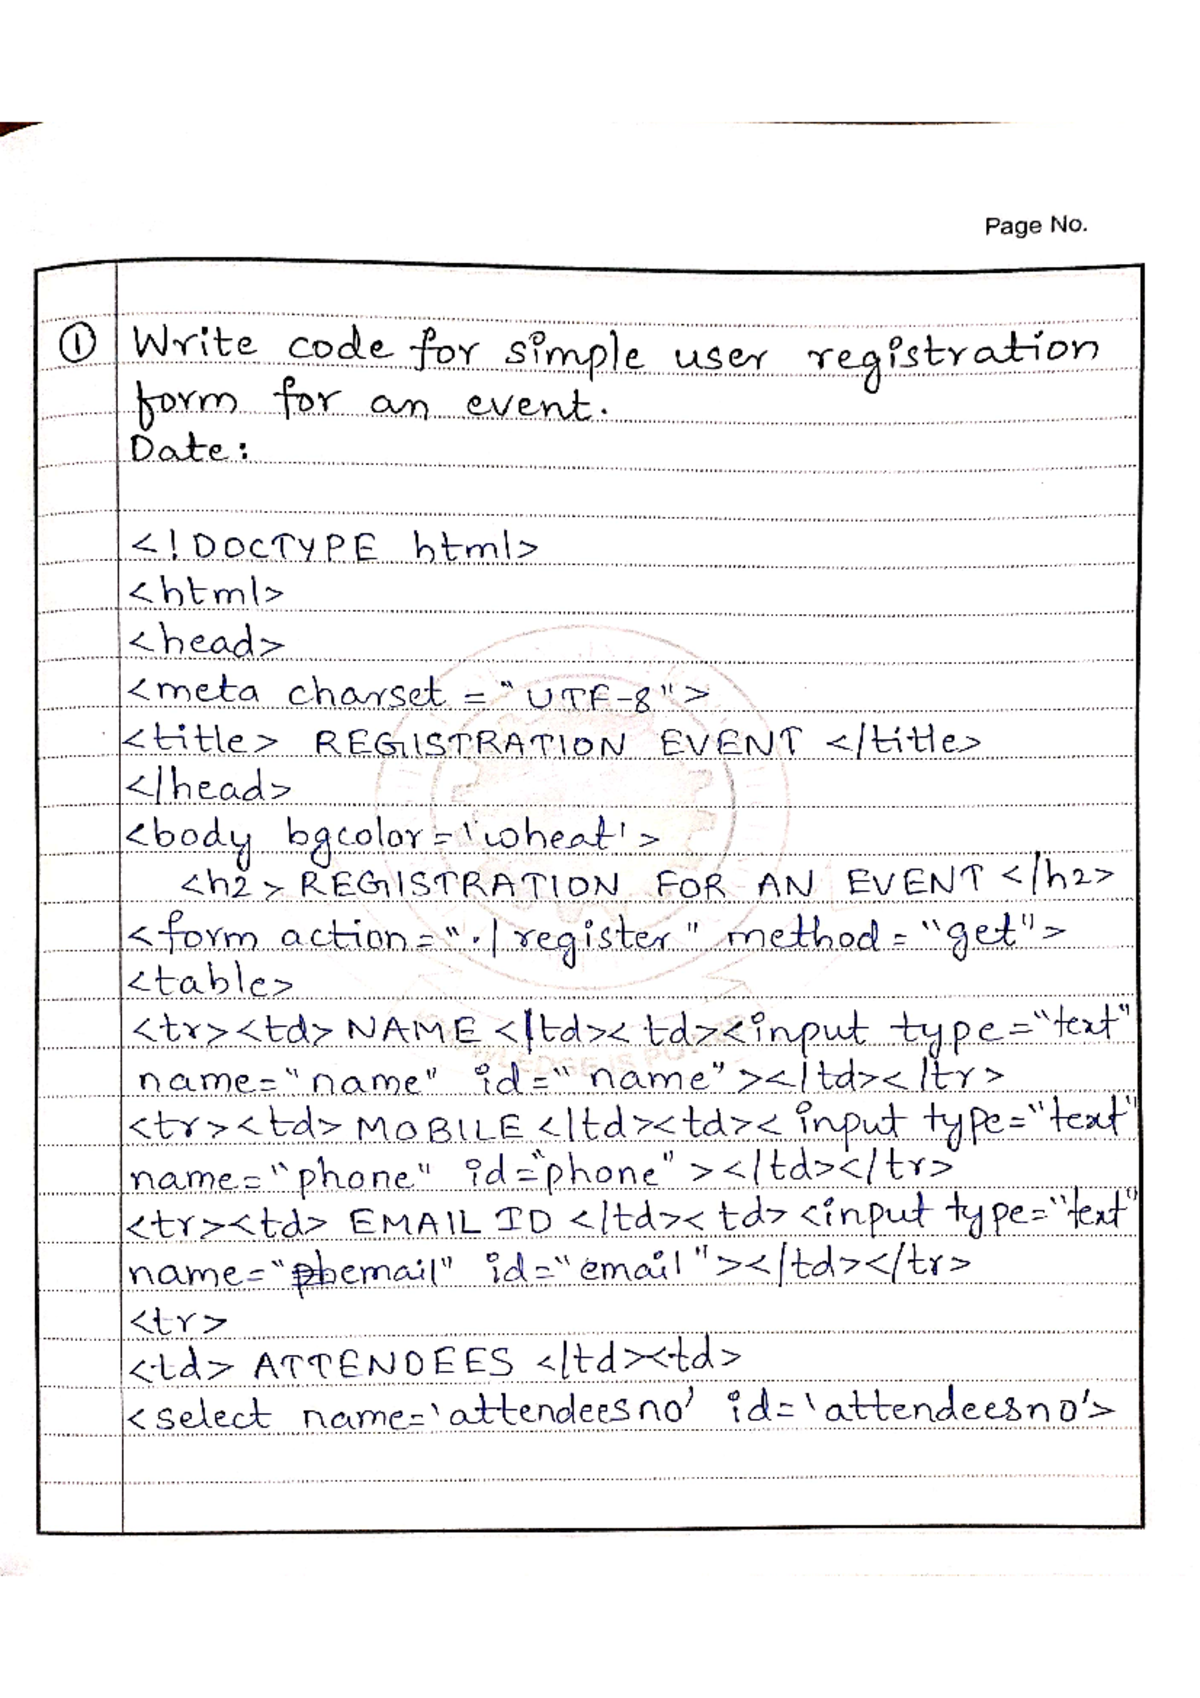 Page No.
① Write code for simple user registration
form for an event.
Date:
<!DOCTYPE html>
<html>
<head>
<meta charset = "UTF-8">
<title> REGISTRATION EVENT </title>
</head>
<body bgcolor='wheat'>
<h2> REGISTRATION FOR AN EVENT </h2>
<form action="./register" method="get">
<table>
<tr><td> NAME </td><td><input type="text"
name="name" id="name"></td></tr>
<tr><td> MOBILE </td><td><input type="text"
name="phone" id="phone"></td></tr>
<tr><td> EMAIL ID </td><td><input type="text"
name="email" id="email"></td></tr>
<tr>
<td> ATTENDEES </td><td>
<select name='attendeesno' id='attendeesno'>